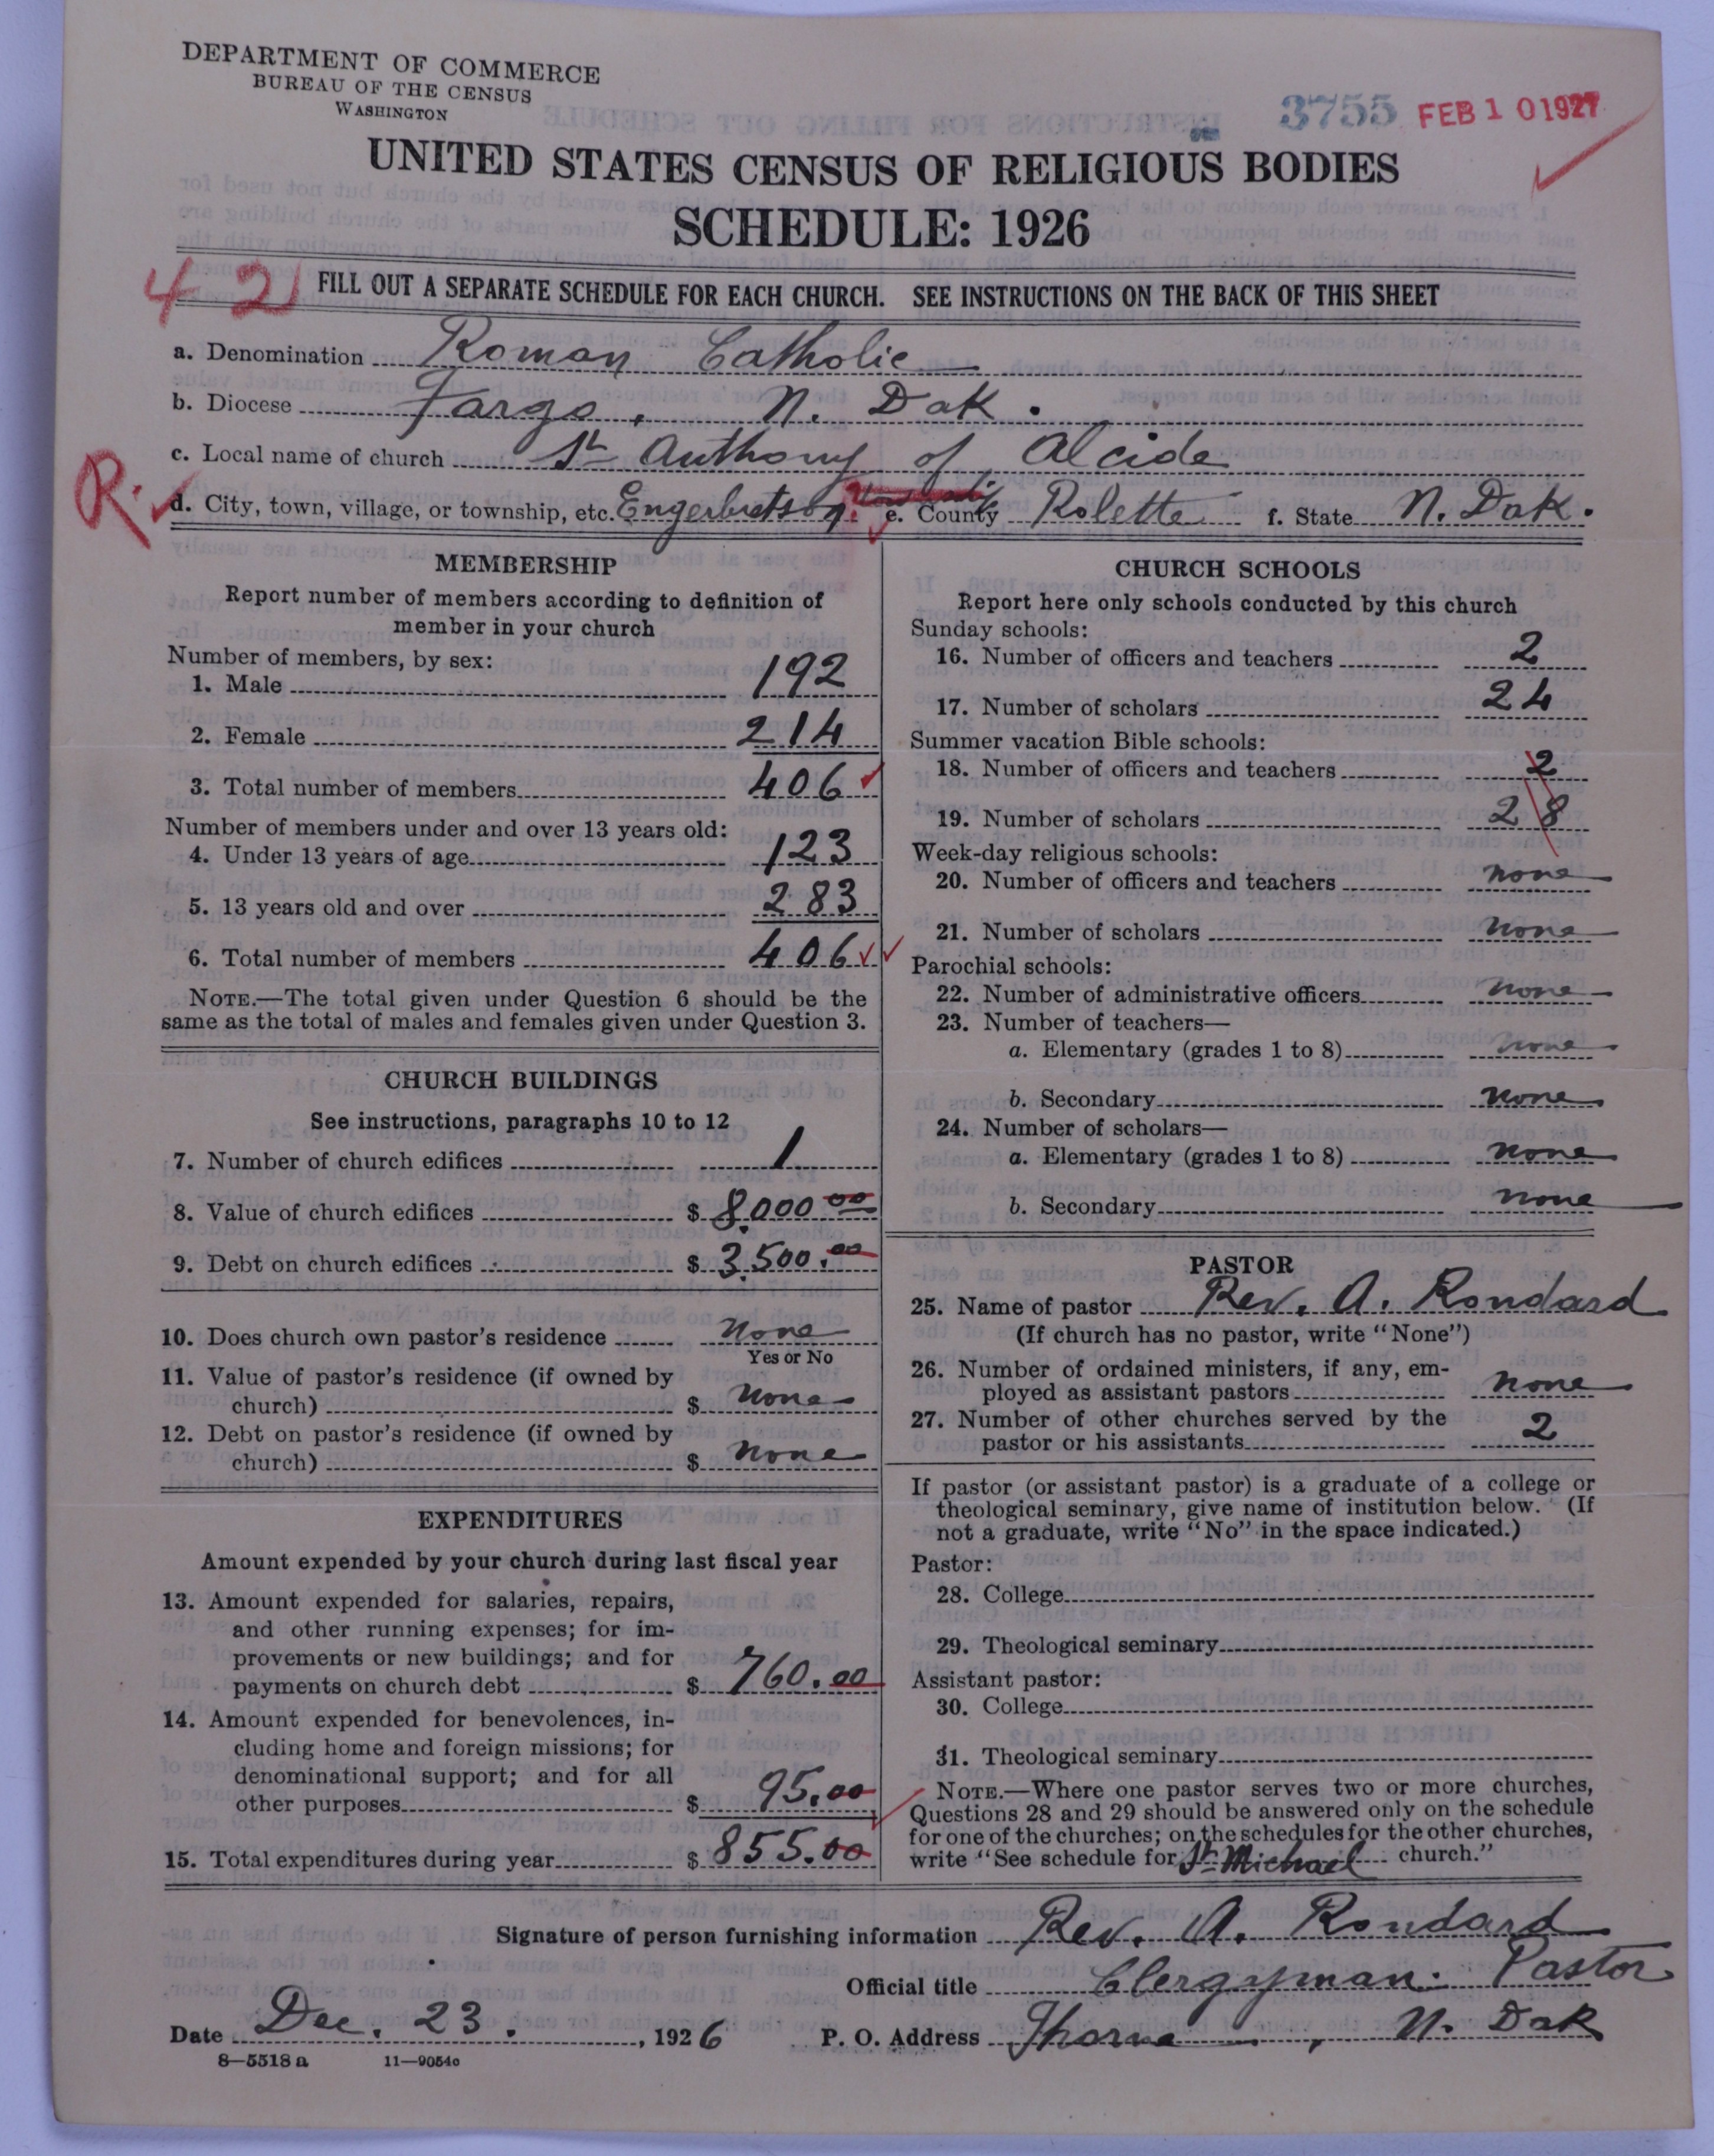 DEPARTMENT OF COMMERCE
BUREAU OF THE CENSUS
WASHINGTON
3755 FEB 10 1927
UNITED STATES CENSUS OF RELIGIOUS BODIES
SCHEDULE: 1926
42
FILL OUT A SEPARATE SCHEDULE FOR EACH CHURCH. SEE INSTRUCTIONS ON THE BACK OF THIS SHEET
a. Denomination Roman Catholic
b. Diocese Fargo, N. Dak.
c. Local name of church St Anthony of Alcide
R.
d. City, town, village, or township, etc. Engerbretson e. County Rolette f. State N. Dak.
MEMBERSHIP
Report number of members according to definition of
member in your church
Number of members, by sex:
1. Male 192
2. Female 214
3. Total number of members 406
Number of members under and over 13 years old:
4. Under 13 years of age 123
5. 13 years old and over 283
6. Total number of members 406
NOTE.—The total given under Question 6 should be the
same as the total of males and females given under Question 3.
CHURCH BUILDINGS
See instructions, paragraphs 10 to 12
7. Number of church edifices 1
8. Value of church edifices $ 8,000 00
9. Debt on church edifices $ 3,500.00
10. Does church own pastor's residence None
Yes or No
11. Value of pastor's residence (if owned by
church) $ None
12. Debt on pastor's residence (if owned by
church) $ None
EXPENDITURES
Amount expended by your church during last fiscal year
13. Amount expended for salaries, repairs,
and other running expenses; for im-
provements or new buildings; and for
payments on church debt $ 760.00
14. Amount expended for benevolences, in-
cluding home and foreign missions; for
denominational support; and for all
other purposes $ 95.00
15. Total expenditures during year $ 855.00
CHURCH SCHOOLS
Report here only schools conducted by this church
Sunday schools:
16. Number of officers and teachers 2
17. Number of scholars 24
Summer vacation Bible schools:
18. Number of officers and teachers 2
19. Number of scholars 28
Week-day religious schools:
20. Number of officers and teachers none
21. Number of scholars none
Parochial schools:
22. Number of administrative officers none
23. Number of teachers—
a. Elementary (grades 1 to 8) none
b. Secondary none
24. Number of scholars—
a. Elementary (grades 1 to 8) none
b. Secondary none
PASTOR
25. Name of pastor Rev. A. Rondard
(If church has no pastor, write "None")
26. Number of ordained ministers, if any, em-
ployed as assistant pastors none
27. Number of other churches served by the
pastor or his assistants 2
If pastor (or assistant pastor) is a graduate of a college or
theological seminary, give name of institution below. (If
not a graduate, write "No" in the space indicated.)
Pastor:
28. College
29. Theological seminary
Assistant pastor:
30. College
31. Theological seminary
NOTE.—Where one pastor serves two or more churches,
Questions 28 and 29 should be answered only on the schedule
for one of the churches; on the schedules for the other churches,
write "See schedule for St Michael church."
Signature of person furnishing information Rev. A. Rondard
Official title Clergyman. Pastor
Date Dec. 23., 1926 P. O. Address Thorne, N. Dak
8—5518 a 11—9054o